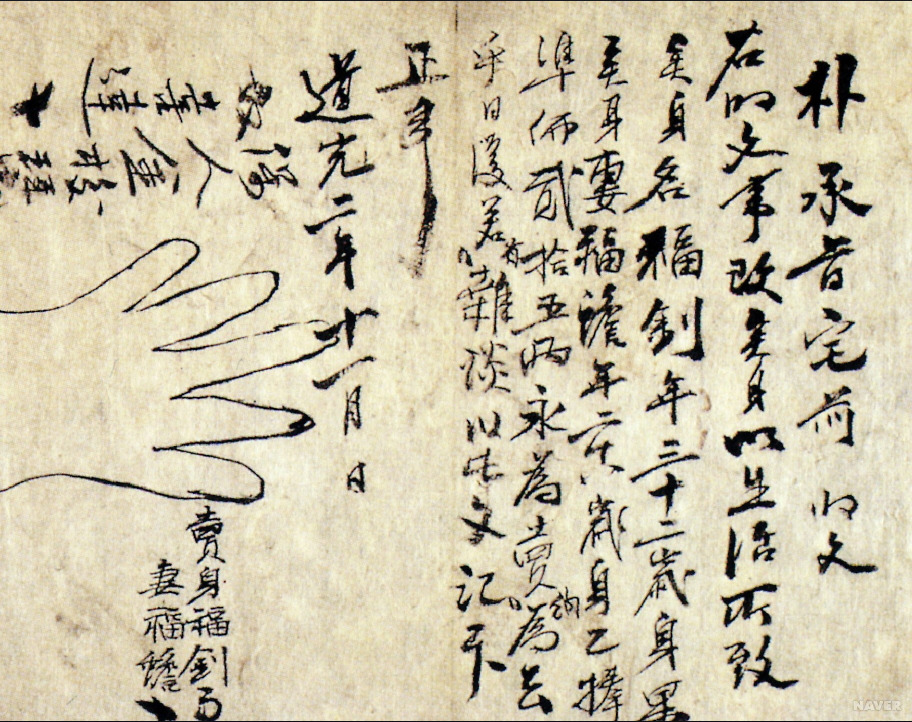 朴 承旨宅前 明文
右明文事段矣身以生活所致
矣身名福釗年三十二歲身果
矣身妻福簷年二十八歲身乙捧
準価貳拾五兩永爲賣納爲去
乎日後若有雜談以此文記卞
正事
道光二年十一月 日
賣身福釗
妻福簷
NAVER